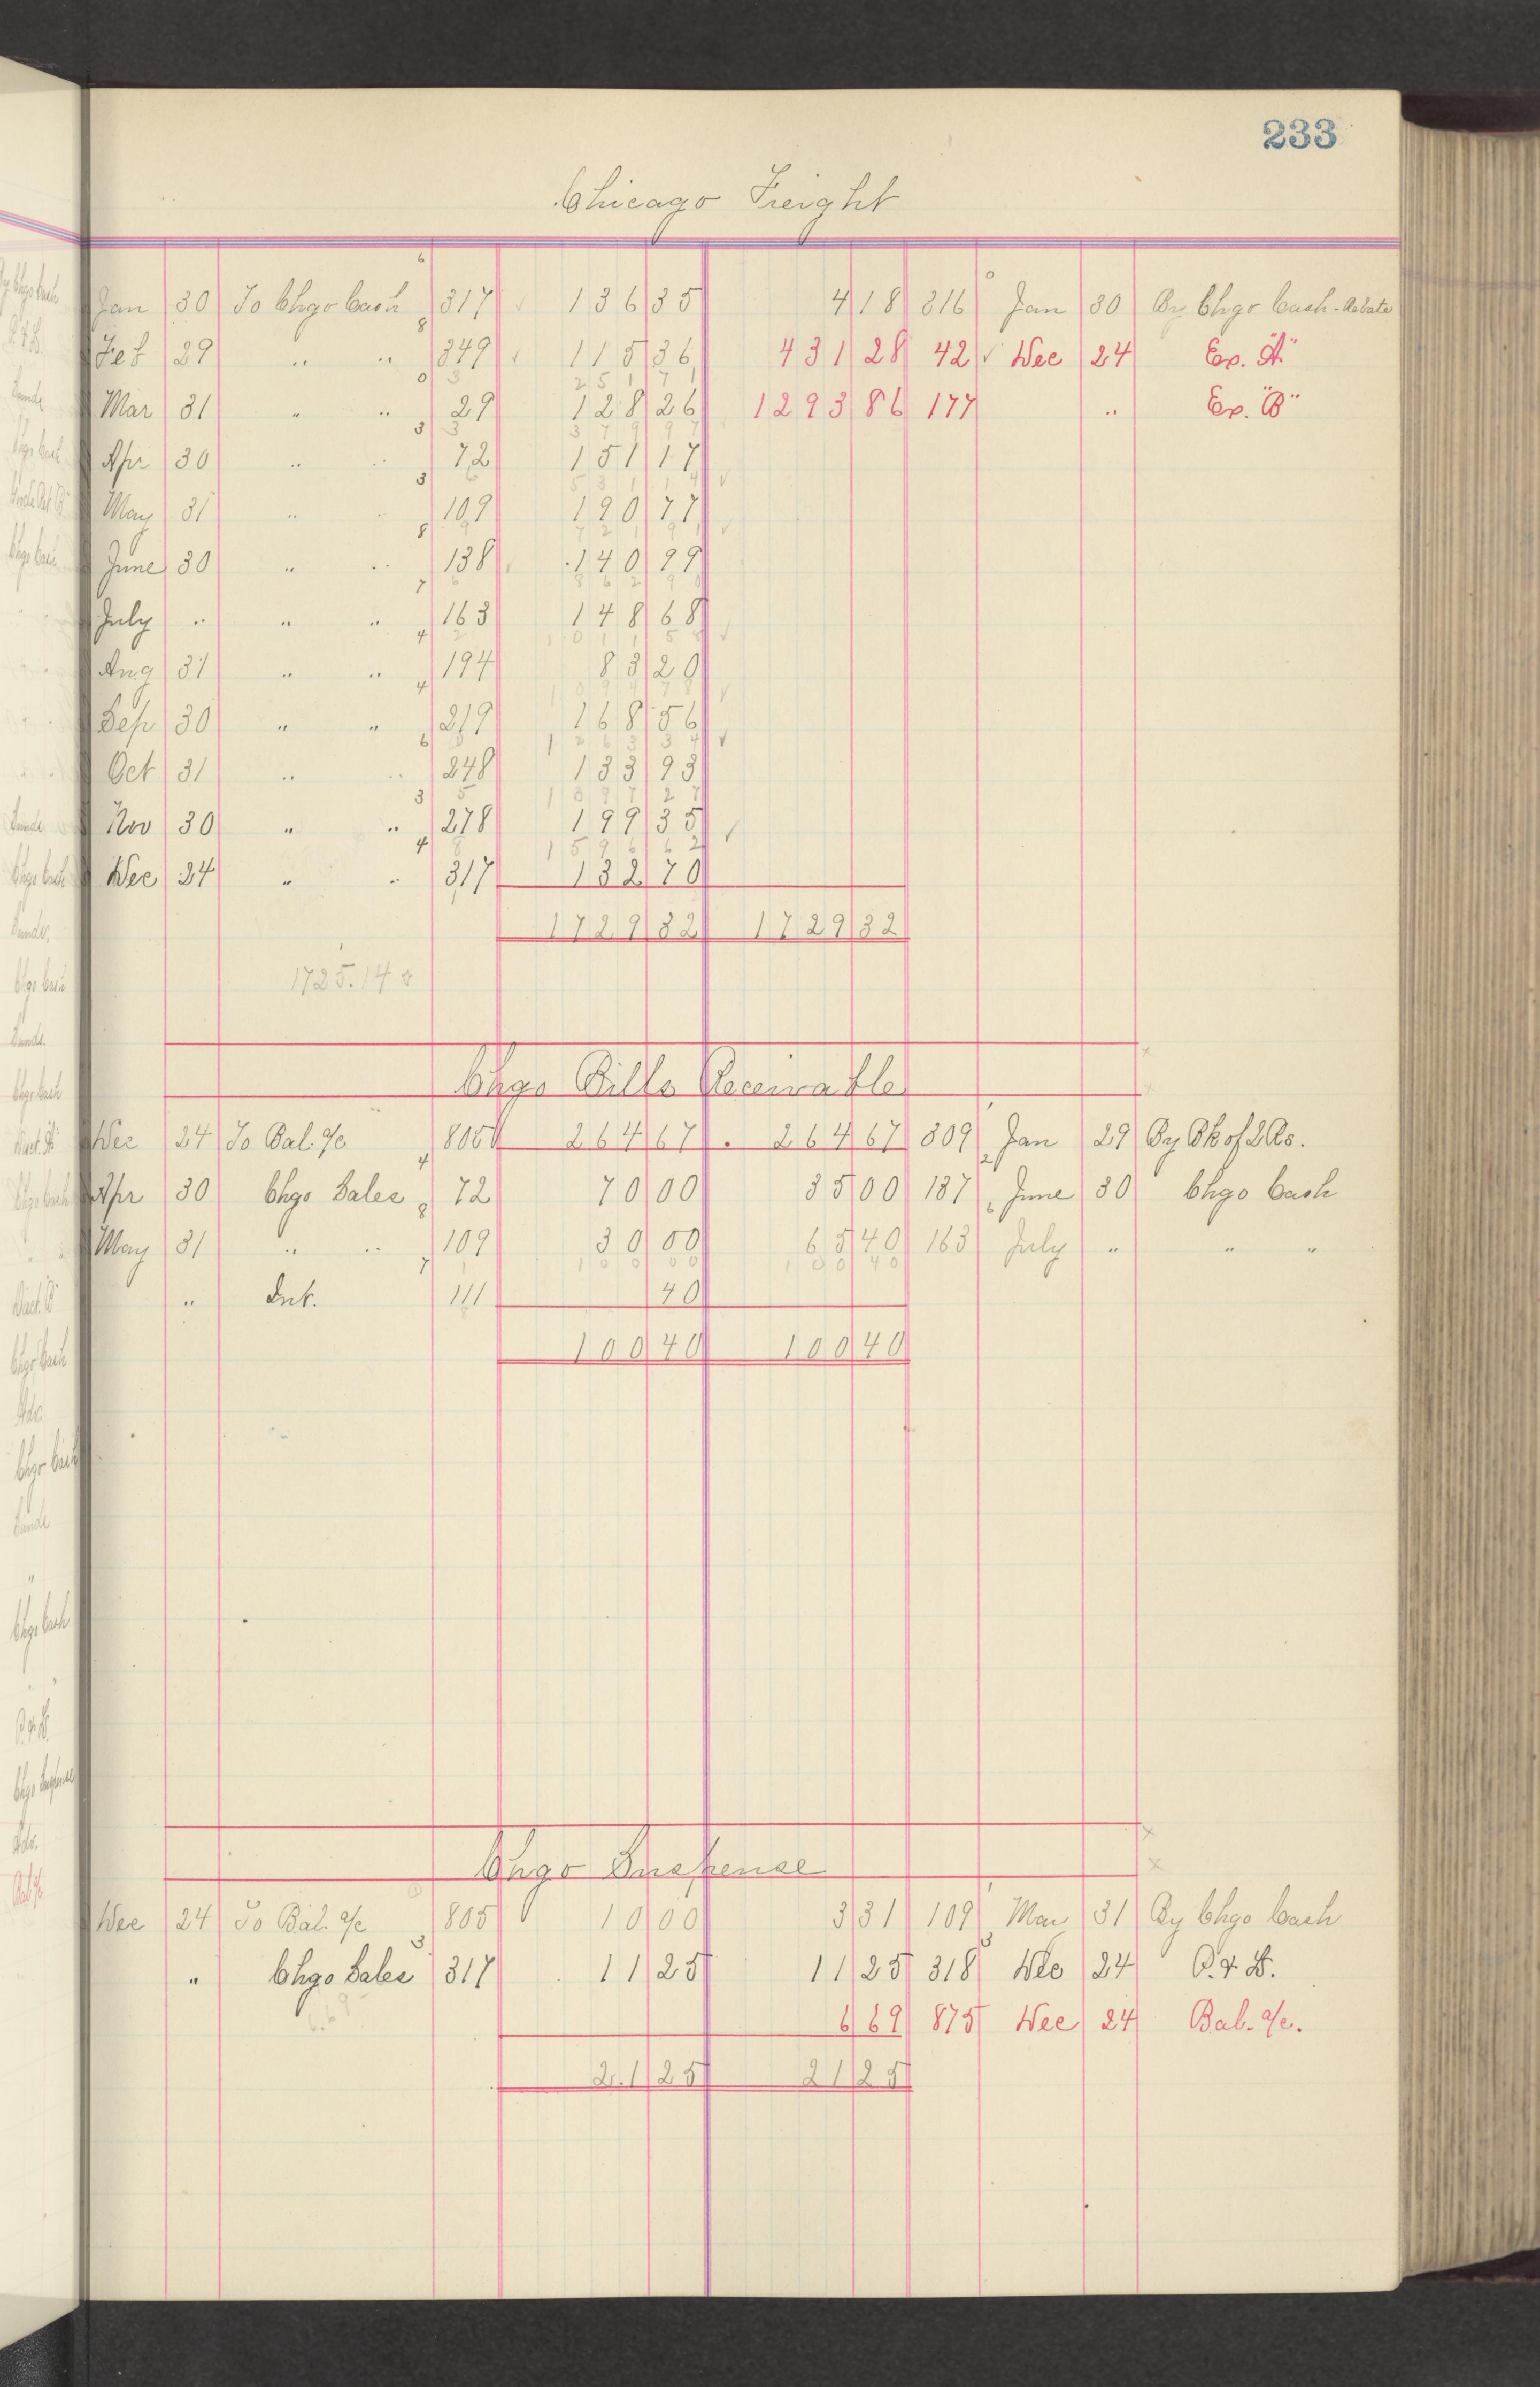 233
Chicago Freight
Jan 30 To Chgo Cash 317 136 35 4 18 316 Jan 30 By Chgo Cash - Rebate
Feb 29 " " 349 115 36 431 28 42 Dec 24 Ex. "A"
251 71
Mar 31 " " 29 128 26 1293 86 177 " Ex. "B"
379 97
Apr 30 " " 72 151 17
531 14
May 31 " " 109 190 77
721 91
June 30 " " 138 140 99
862 90
July " " " 163 148 68
1011 58
Aug 31 " " 194 83 20
1094 78
Sep 30 " " 219 168 56
1263 34
Oct 31 " " 248 133 93
1397 27
Nov 30 " " 278 199 35
1596 62
Dec 24 " " 317 132 70
1729 32 1729 32
1725.14
Chgo Bills Receivable
Dec 24 To Bal. a/c 805 264 67 264 67 309 Jan 29 By Bk of D Rs.
Apr 30 Chgo Sales 72 70 00 35 00 137 June 30 Chgo Cash
May 31 " " 109 30 00 65 40 163 July " " "
100 00 100 40
" Int. 111 40
100 40 100 40
Chgo Suspense
Dec 24 To Bal. a/c 805 10 00 3 31 109 Mar 31 By Chgo Cash
" Chgo Sales 317 11 25 11 25 318 Dec 24 P. & L.
6 69 875 Dec 24 Bal. a/c.
21 25 21 25